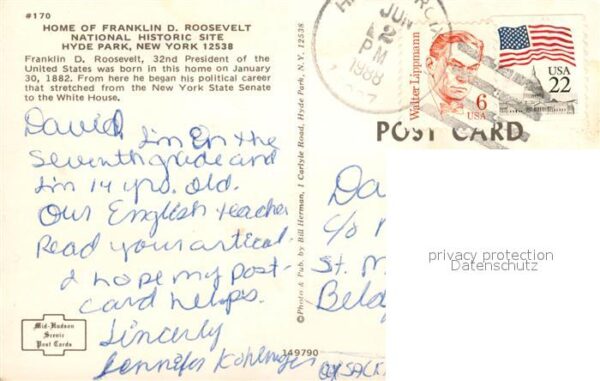 #170
HOME OF FRANKLIN D. ROOSEVELT
NATIONAL HISTORIC SITE
HYDE PARK, NEW YORK 12538
Franklin D. Roosevelt, 32nd President of the
United States was born in this home on January
30, 1882. From here he began his political career
that stretched from the New York State Senate
to the White House.
David, I'm in the
seventh grade and
I'm 14 yrs. old.
Our English teacher
Read your artical.
I hope my Post-
card helps.
Sincerly
Jennifer
Mid-Hudson
Scenic
Post Cards
149790
©Photo & Pub. by Bill Herman, 1 Carlyle Road, Hyde Park, N.Y. 12538
JUN
2
PM
1988
Walter Lippmann
6
USA
USA
22
POST CARD
Da
c/o
St. M
privacy protection
Datenschutz